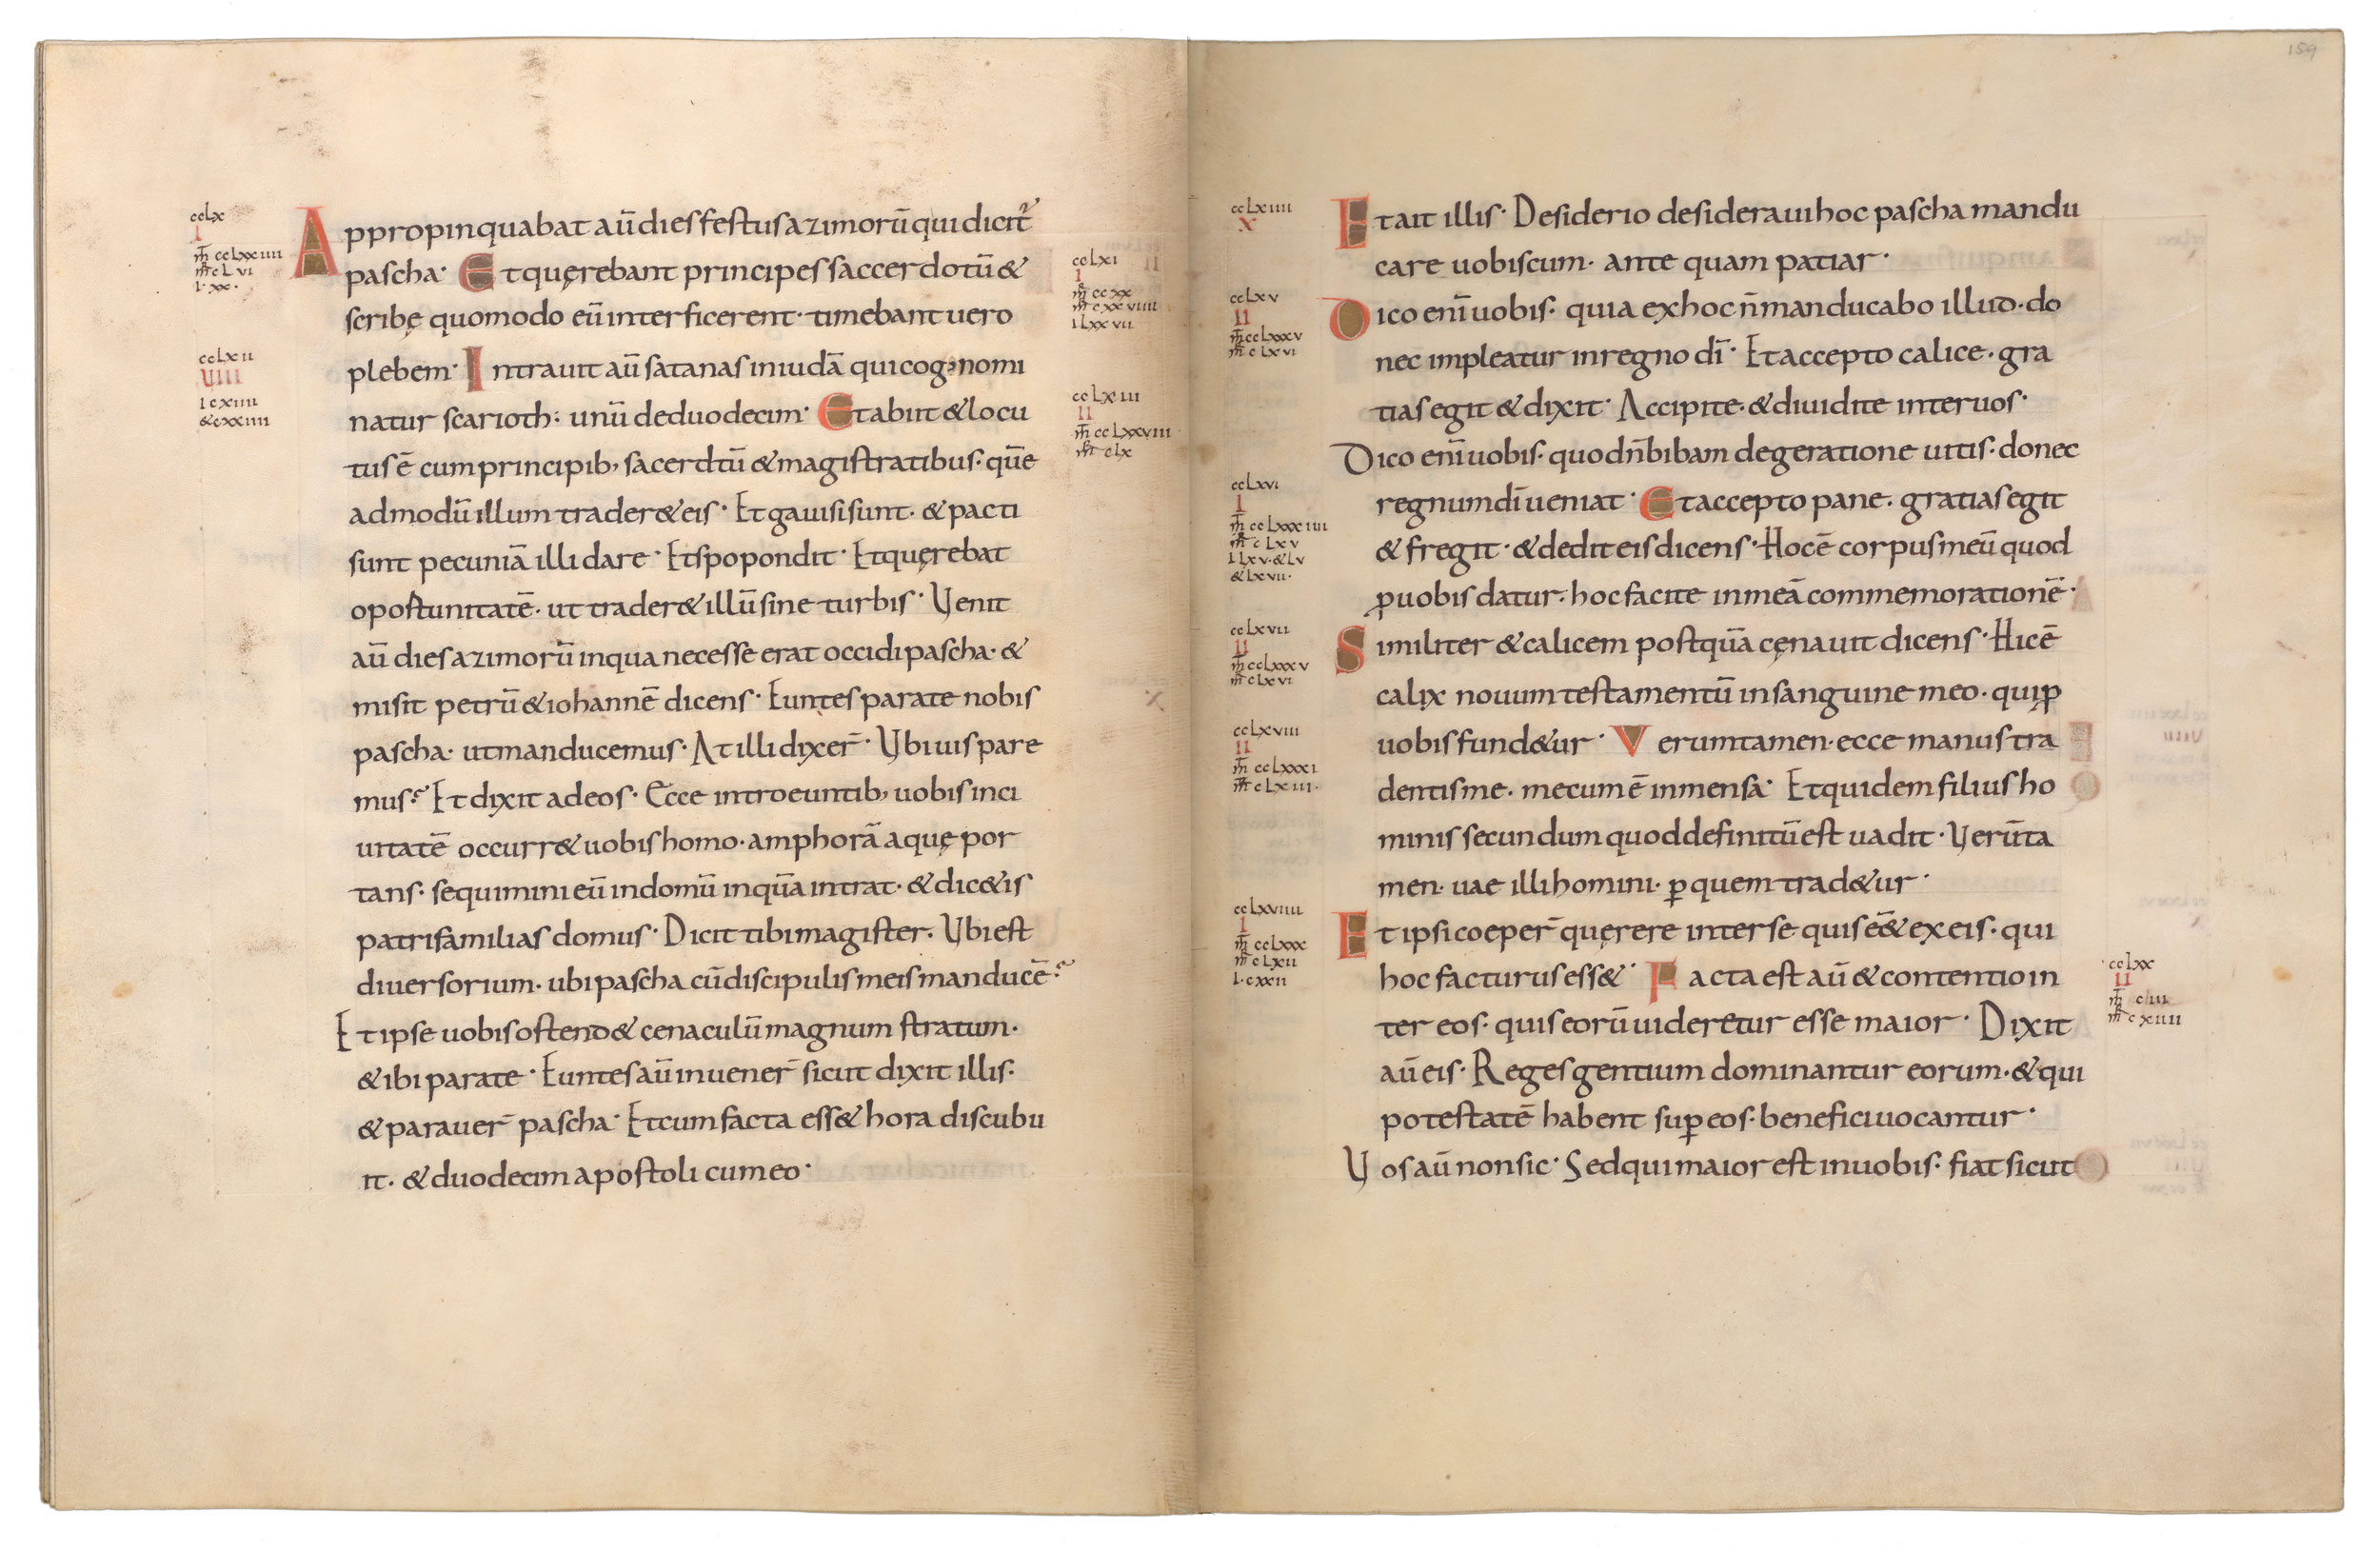 ccLx
I
m̅ ccLxxiiii
m̅r cLvi
I·xx·
Appropinquabat aū dies festus azimorū qui dicit̅
pascha· Et quęrebant principes saccerdotū &
ccLxi
I
m̅ ccxx
m̅r cxxviiii
I Lxxvii
scribę quomodo eū interficerent· timebant uero
ccLxii
VIII
I cxiiii
& cxxiiii
plebem· Intrauit aū satanas in iudā qui cognomi
natur scarioth: unū de duodecim· Et abiit & locu
ccLxiii
II
m̅ ccLxxviii
m̅r cLx
tus ē cum principib; sacerdtū & magistratibus· quē
admodū illum trader& eis· Et gauisi sunt· & pacti
sunt pecuniā illi dare· Et spopondit· Et quęrebat
opostunitatē· ut trader& illū sine turbis· Venit
aū dies azimorū in qua necesse erat occidi pascha· &
misit petrū & iohannē dicens· Euntes parate nobis
pascha· ut manducemus· At illi dixer̅· Vbi uis pare
mus? Et dixit ad eos· Ecce introeuntib; uobis in ci
uitatē occurr& uobis homo· amphorā aquę por
tans· sequimini eū in domū in quā intrat· & dic&is
patrifamilias domus· Dicit tibi magister· Vbi est
diuersorium· ubi pascha cū discipulis meis manducē?
Et ipse uobis ostend& cenaculū magnum stratum·
& ibi parate· Euntes aū inuener̅ sicut dixit illis·
& parauer̅ pascha· Et cum facta ess& hora discubu
it· & duodecim apostoli cum eo·
159
ccLxiiii
X
Et ait illis· Desiderio desideraui hoc pascha mandu
care uobiscum· ante quam patiar·
ccLxv
II
m̅ ccLxxxv
m̅r cLxvi
Dico enī uobis· quia ex hoc n̅ manducabo illud· do
nec impleatur in regno dī· Et accepto calice· gra
tias egit & dixit· Accipite· & diuidite inter uos·
Dico enī uobis· quod n̅ bibam de geratione uitis· donec
ccLxvi
I
m̅ ccLxxxiiii
m̅r cLxv
I Lxv·& Lv
& Lxvii·
regnum dī ueniat· Et accepto pane· gratias egit
& fregit· & dedit eis dicens· Hoc ē corpus meū quod
ꝓ uobis datur· hoc facite in meā commemorationē·
ccLxvii
II
m̅ ccLxxxv
m̅r cLxvi
Similiter & calicem postquā cęnauit dicens· Hic ē
calix nouum testamentū in sanguine meo· qui ꝓ
ccLxviii
II
m̅ ccLxxxi
m̅r cLxiii·
uobis fund&ur· Verumtamen· ecce manus tra
dentis me· mecum ē in mensa· Et quidem filius ho
minis secundum quod definitū est uadit· Verūta
men· uae illi homini· ꝑ quem trad&ur·
ccLxviiii
I
m̅ ccLxxx
m̅r cLxii
I·cxxii
Et ipsi coeper̅ quęrere inter se quis ē& ex eis· qui
hoc facturus ess&· Facta est aū & contentio in
ccLxx
II
m̅ ciii
m̅r cxiiii
ter eos· quis eorū uideretur esse maior· Dixit
aū eis· Reges gentium dominantur eorum· & qui
potestatē habent suꝑ eos· benefici uocantur·
Vos aū non sic· Sed qui maior est in uobis· fiat sicut